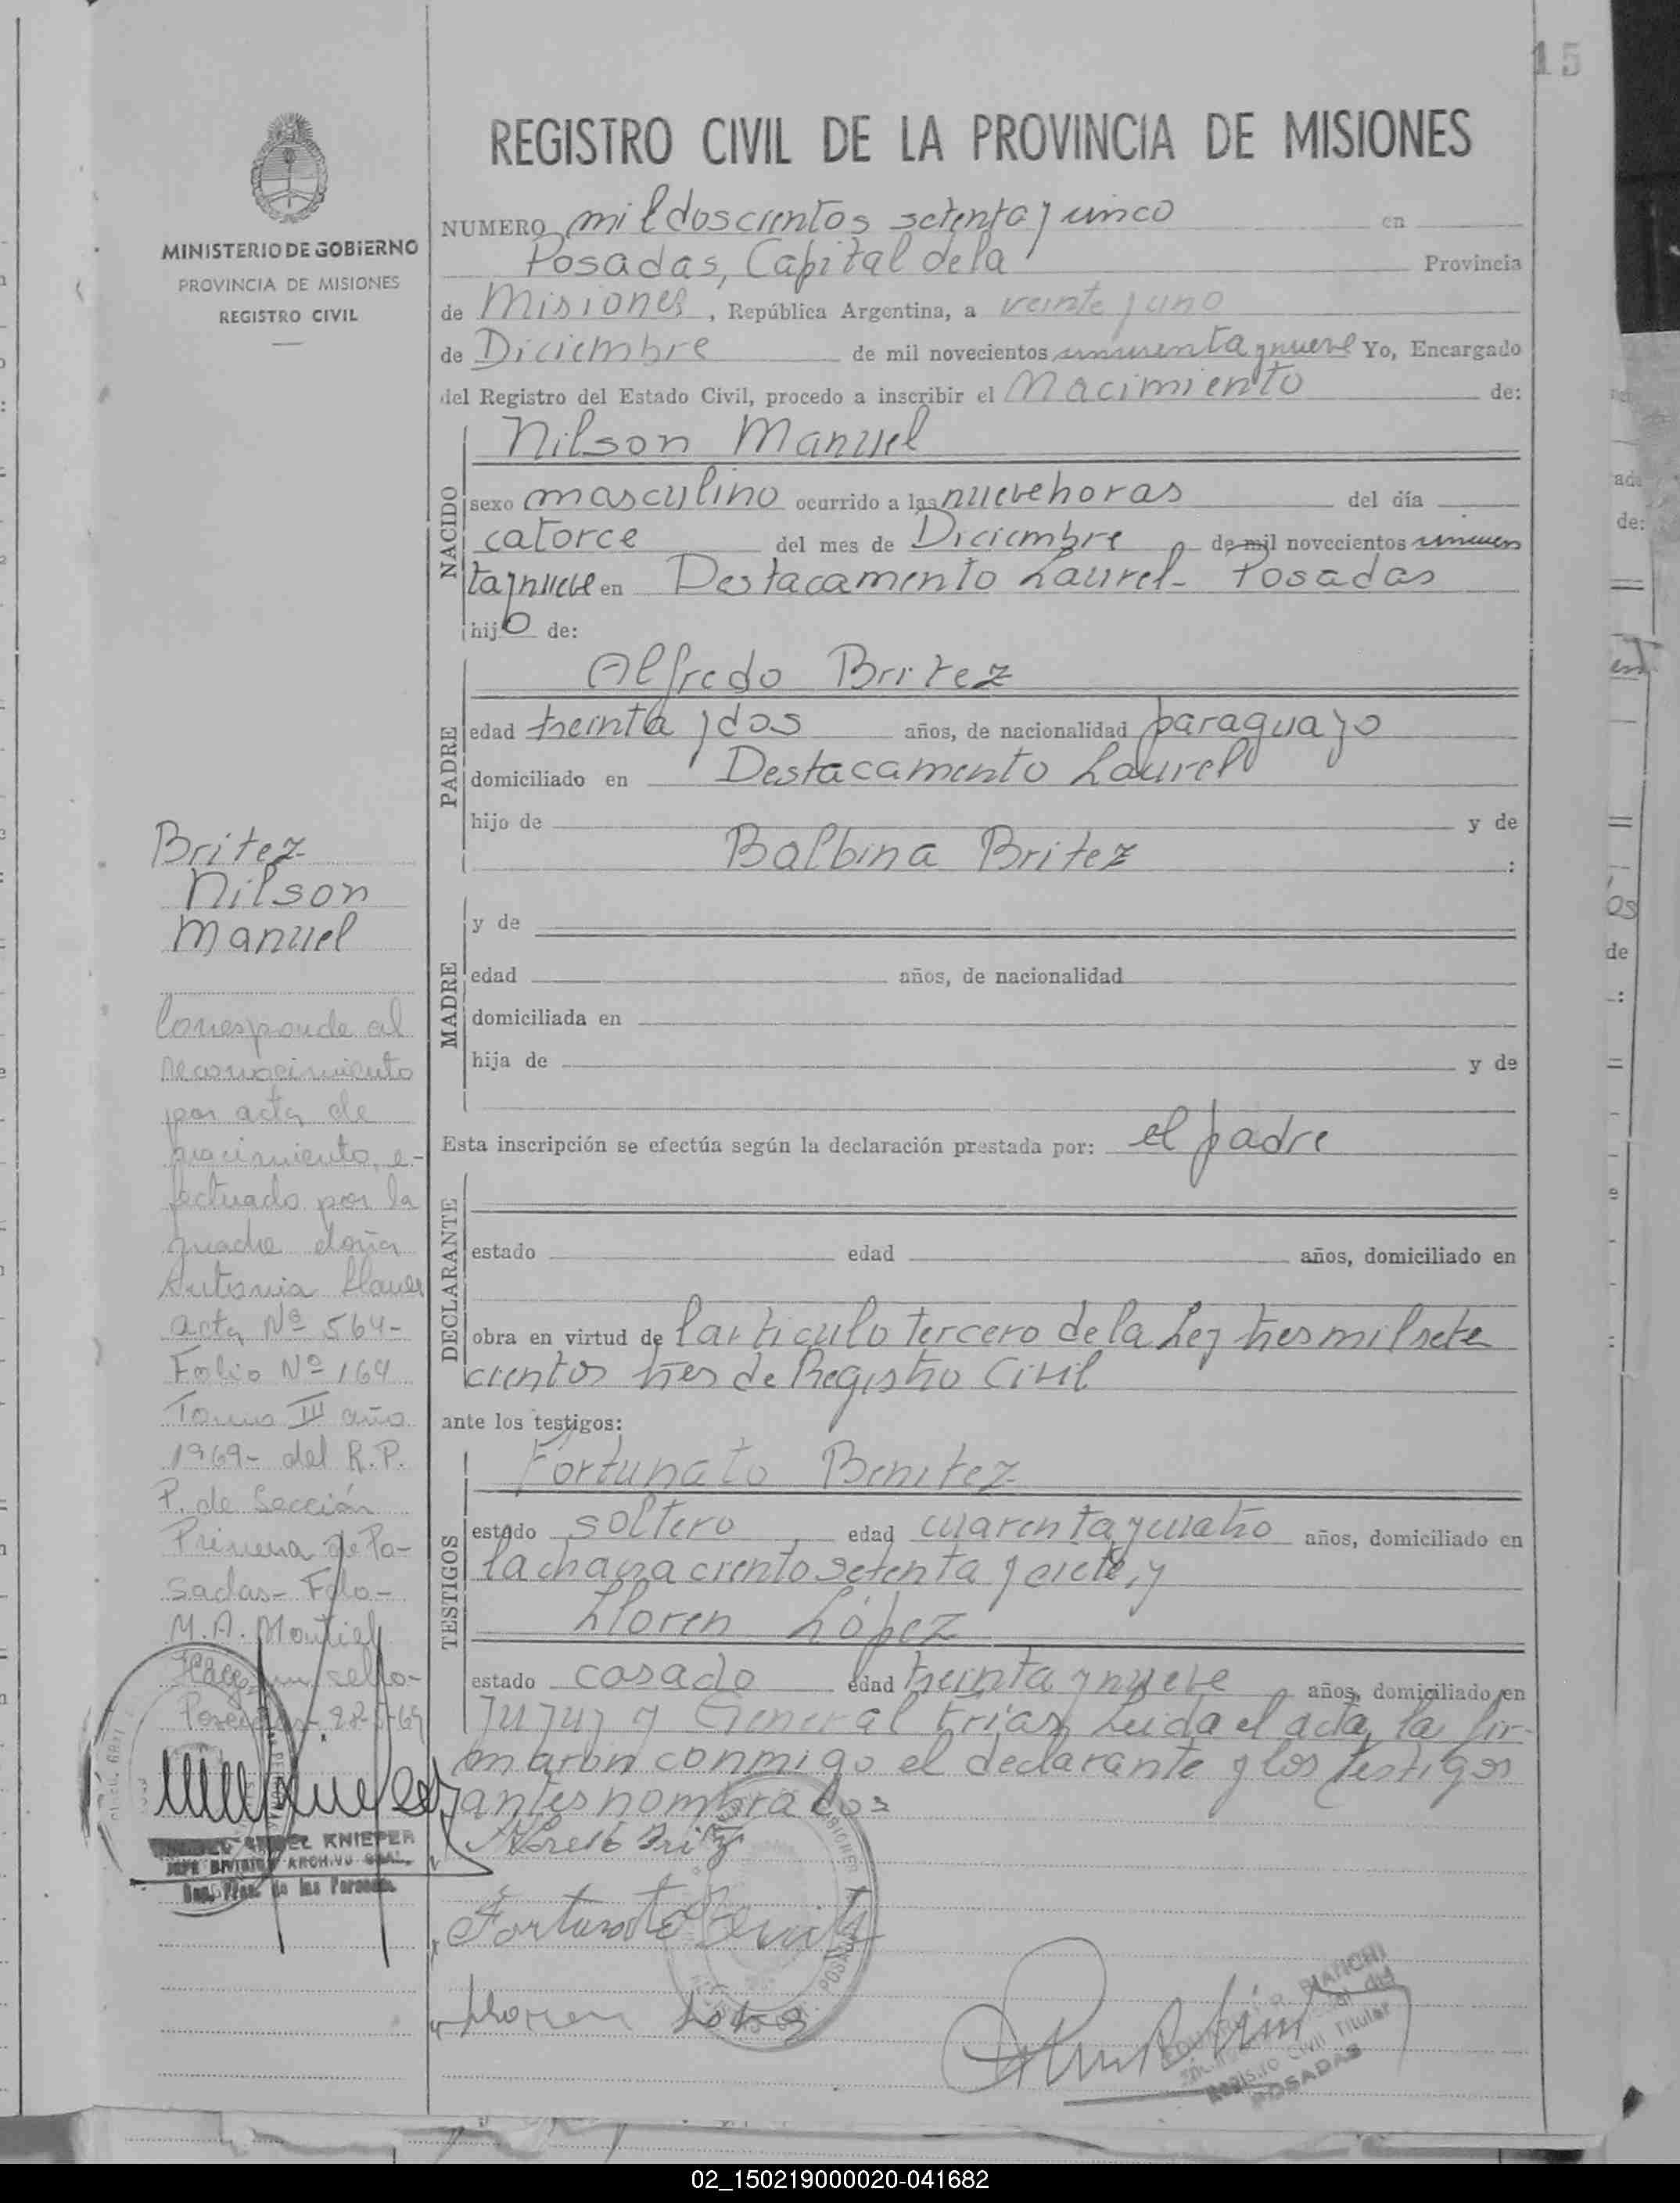 15
REGISTRO CIVIL DE LA PROVINCIA DE MISIONES
MINISTERIO DE GOBIERNO
PROVINCIA DE MISIONES
REGISTRO CIVIL
NUMERO mil doscientos setenta y cinco en
Posadas, Capital de la Provincia
de Misiones, República Argentina, a veinte y uno
de Diciembre de mil novecientos cincuenta y nueve Yo, Encargado
del Registro del Estado Civil, procedo a inscribir el Nacimiento de:
NACIDO
Nilson Manuel
sexo masculino ocurrido a las nueve horas del día
catorce del mes de Diciembre de mil novecientos cincuen
ta y nueve en Destacamento Laurel - Posadas
hijo de:
PADRE
Alfredo Britez
edad treinta y dos años, de nacionalidad paraguayo
domiciliado en Destacamento Laurel
hijo de y de
Balbina Britez :
MADRE
y de
edad años, de nacionalidad
domiciliada en
hija de y de
Esta inscripción se efectúa según la declaración prestada por: el padre
DECLARANTE
estado edad años, domiciliado en
obra en virtud de l articulo tercero de la Ley tres mil sete
cientos tres de Registro Civil
ante los testigos:
TESTIGOS
Fortunato Benitez
estado soltero edad cuarenta y cuatro años, domiciliado en
la chacra ciento setenta y siete, y
Lloren López
estado casado edad treinta y nueve años, domiciliado en
Jujuy y General Frias, Leida el acta, la fir-
maron conmigo el declarante y los testigos
antes nombrados
Fortunato Benitez
Lloren López
Britez
Nilson
Manuel
Corresponde al
reconocimiento
por acta de
nacimiento, e-
fectuado por la
madre doña
Antonia
acta Nº 564-
Folio Nº 164
Tomo III año
1969- del R.P.
P. de Sección
Primera de Po-
sadas- Fdo-
M.A. Montiel
Hay un sello-
Posadas- 69
KNIEPER
JEFE DIVISION ARCHIVO GRAL.
de las Personas
MISIONES
POSADAS
BIANCHI
Registro Civil Titular
POSADAS
02_150219000020-041682